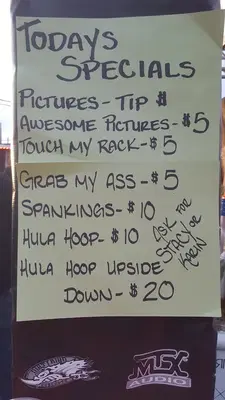 TODAYS
SPECIALS
PICTURES - TIP $
AWESOME PICTURES - $5
TOUCH MY RACK - $5
GRAB MY ASS - $5
SPANKINGS - $10
HULA HOOP - $10
HULA HOOP UPSIDE
DOWN - $20
ASK FOR
STACY OR
KORIN
MTX
AUDIO